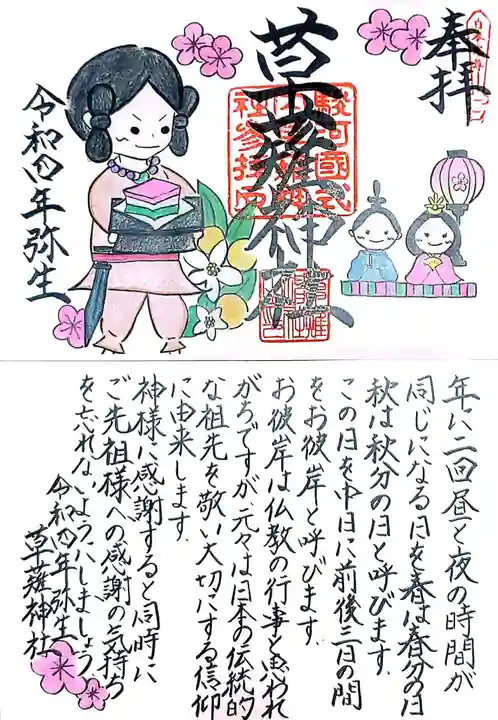 奉拝
草薙神社
駿河國式
内草薙神
社参拝印
令和四年弥生
年に二回昼と夜の時間が
同じになる日を春は春分の日
秋は秋分の日と呼びます。
この日を中日に前後三日の間
をお彼岸と呼びます。
お彼岸は仏教の行事と思われ
がちですが、元々は日本の伝統的
な祖先を敬い大切にする信仰
に由来します。
神様に感謝すると同時に
ご先祖様への感謝の気持ち
を忘れないようにしましょう。
令和四年弥生
草薙神社